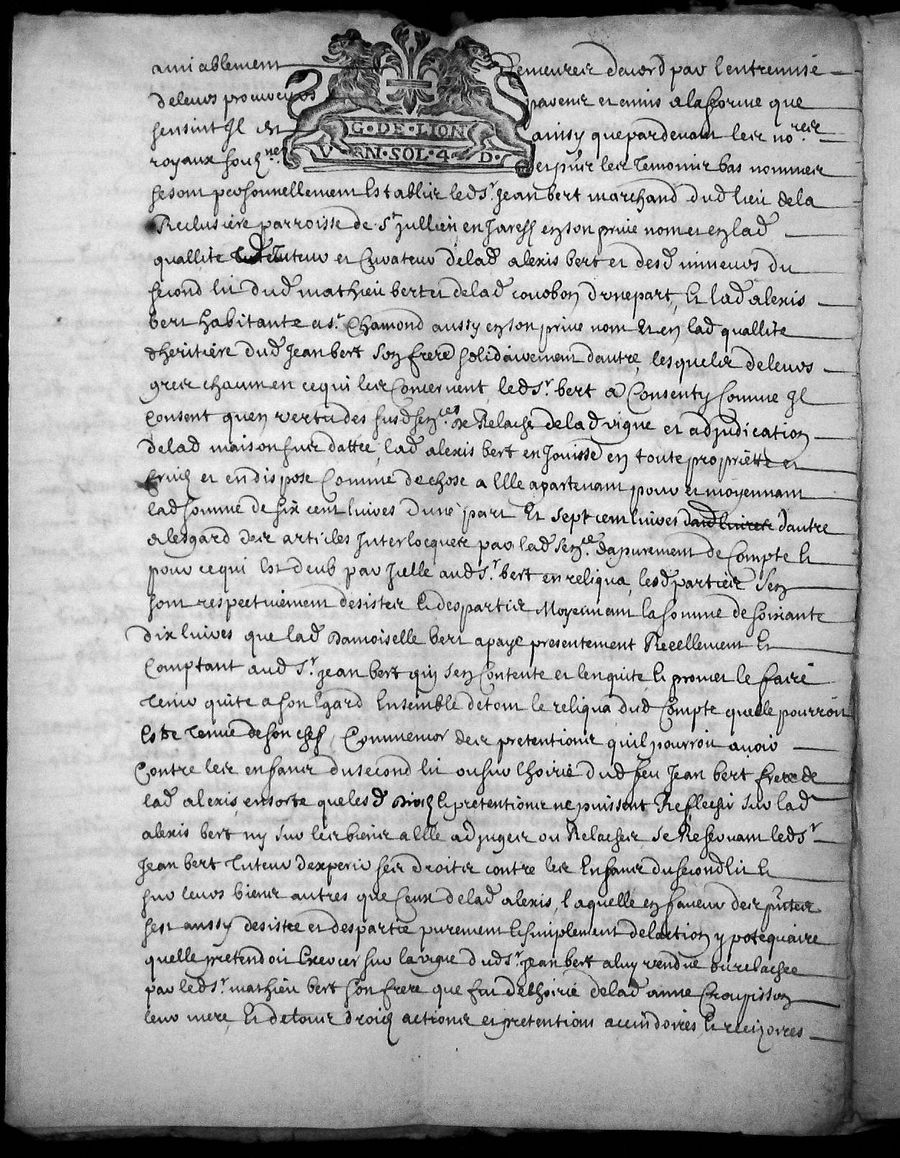 amiablement demeurer dacord par lentremise
de leurs proches parens et amis a la forme que
sensuit Il est ainsy que pardevant les no.res
G. DE LION
VN. SOL. 4 D.
royaux soub.nes et pnt les temoins bas nommes
se sont personnellement Establis led s.r Jean bert marchand dud lieu de la
Reclusiere parroisse de s.t Jullien en Jarest en son prive nom et en lad
quallite de tuteur et Curateur de lad alexis bert et desd mineurs du
second lit dud mathieu bert et de lad courbon dune part, Et lad alexis
bert habitante a s.t Chamond aussy en son prive nom Et en lad quallite
dheritiere dud Jean bert son frere solidairement dautre, lesquels de leurs
gres chacun en ce qui les Concernent led s.r bert a Consenty Comme Il
Consent quen vertu des susd sen.ces de Relache de lad vigne et adjudication
de lad maison sus dattee, lad alexis bert en Jouisse en toute propriette et
fruits et en dispose Comme de chose a Elle apartenant pour et moyennant
lad somme de six cent livres dune part Et sept cent livres dautre
a lesgard des articles Interlocquees par lad sen.ce dapurement de Compte Et
pour ce qui Est deub par Icelle aud s.r bert en reliqua, lesd parties sen
sont respectivement desister Et despartir Moyennant la somme de soixante
dix livres que lad Damoiselle bert a paye presentement Reellement Et
Comptant aud s.r Jean bert quy sen Contente et len quite Et promet le faire
tenir quite a son Egard Ensemble de tout le reliqua dud Compte quelle pourroit
Estre tenue de son chef, Comme aussy des pretentions quil pourroit avoir
Contre les enfans du second lit ou sur lhoirie dud feu Jean bert frere de
lad alexis, en sorte que lesd droits Et pretentions ne puissent Reflechir sur lad
alexis bert ny sur les biens a Elle adjuges ou Relaches se Reservant led s.r
Jean bert tuteur dexpercer ses droits contre les Enfans du second lit Et
sur leurs biens autres que Ceux de lad alexis, laquelle en faveur des pntes
sest aussy desistee et despartie purement Et simplement de laction ypotequaire
quelle pretendoit Exercer sur la vigne dud s.r Jean bert a luy vendue ou relachee
par led s.r mathieu bert son frere que fut de lhoirie de lad anne Croupisson
leur mere, Et de tous droits actions et pretentions